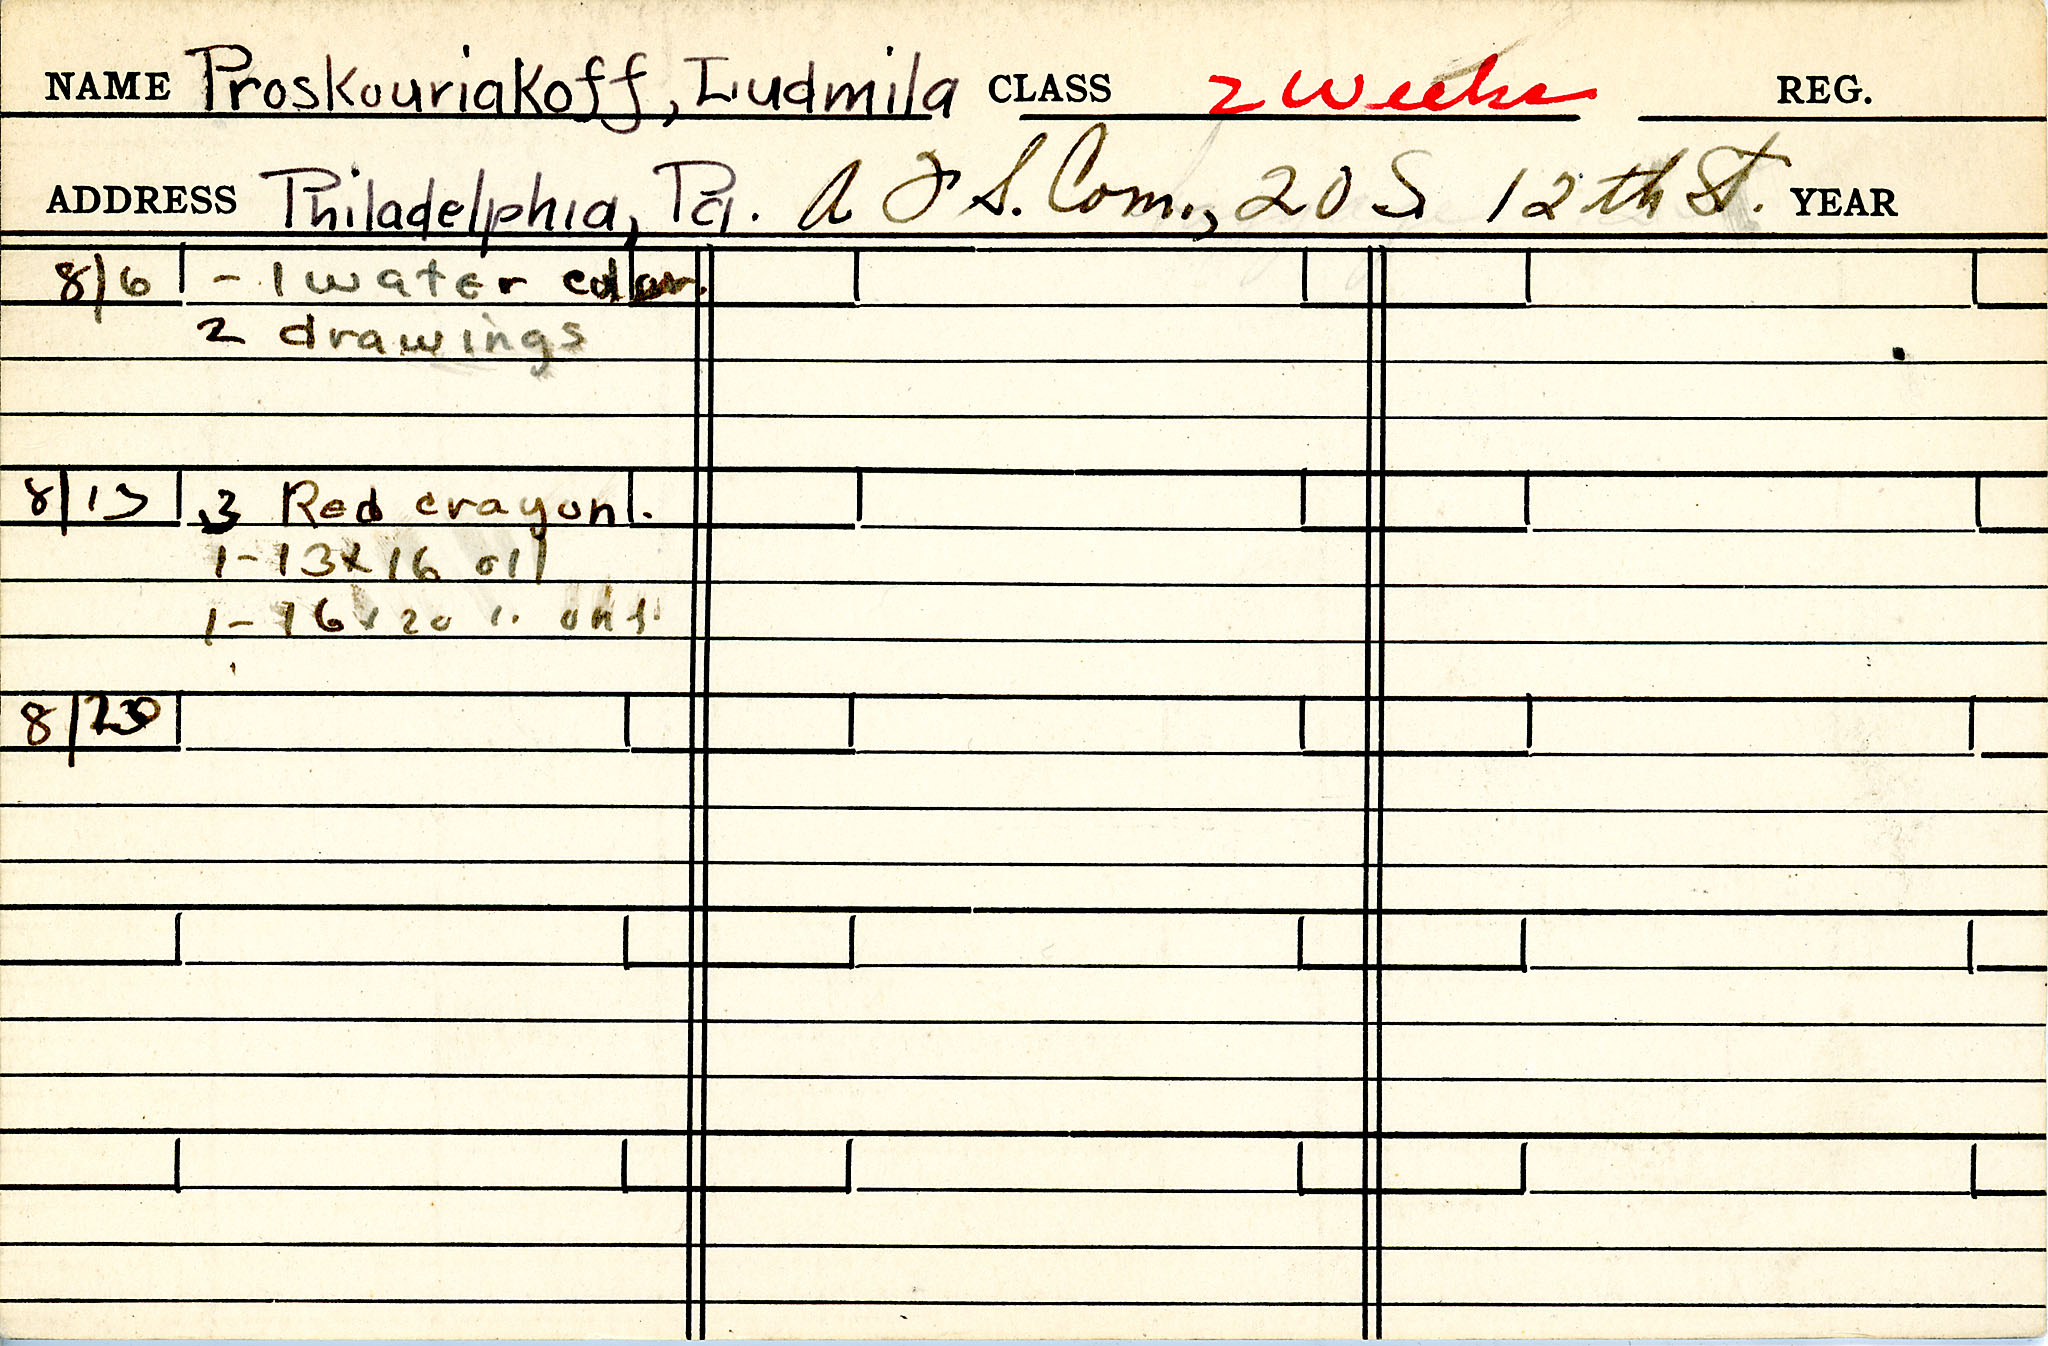 NAME Proskouriakoff, Ludmila CLASS 2 Weeks REG.
ADDRESS Philadelphia, Pa. A F S. Com., 20 S 12th St. YEAR
8/6 - 1 water color.
2 drawings
8/13 3 Red crayon.
1-13x16 oil
1-16x20
8/20